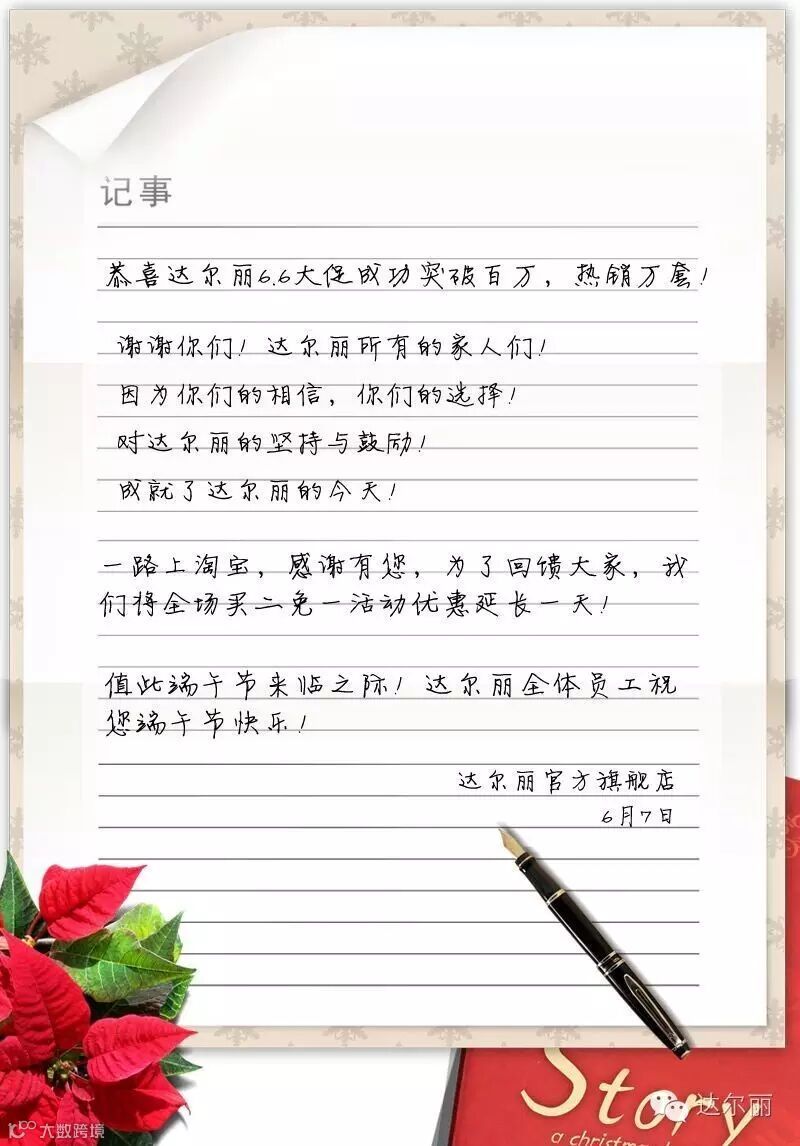 记事
恭喜达尔丽6.6大促成功突破百万，热销万套！
谢谢你们！达尔丽所有的家人们！
因为你们的相信，你们的选择！
对达尔丽的坚持与鼓励！
成就了达尔丽的今天！
一路上淘宝，感谢有您，为了回馈大家，我
们将全场买二免一活动优惠延长一天！
值此端午节来临之际！达尔丽全体员工祝
您端午节快乐！
达尔丽官方旗舰店
6月7日
Story
a christmas
达尔丽
大数跨境